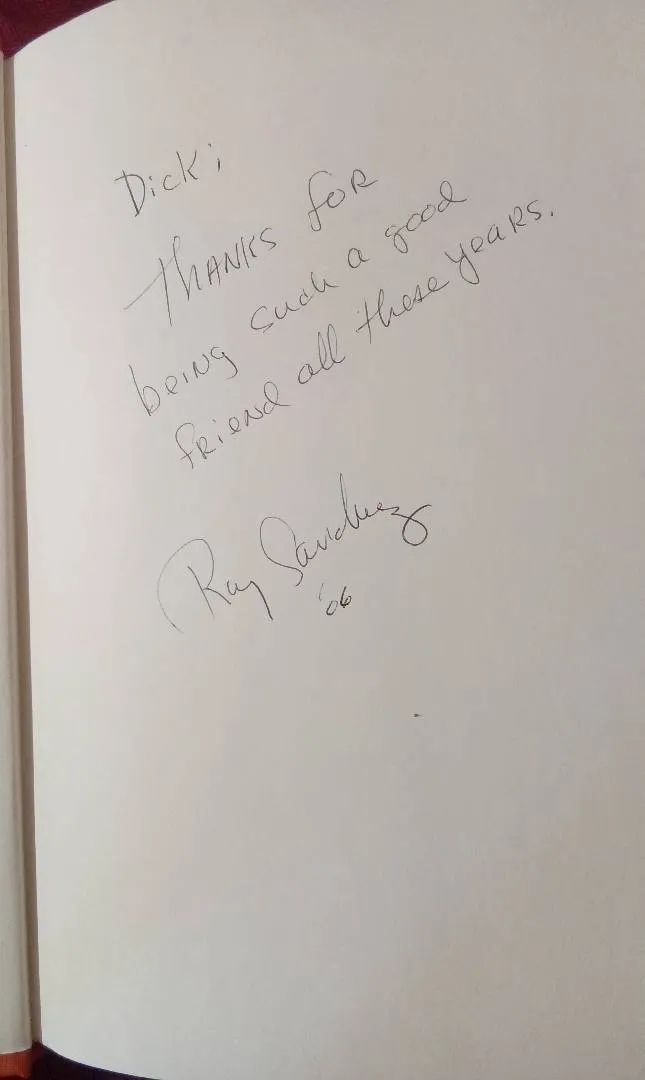 Dick;
THANKS FOR
being such a good
friend all these years.
Ray Sanchez
'06